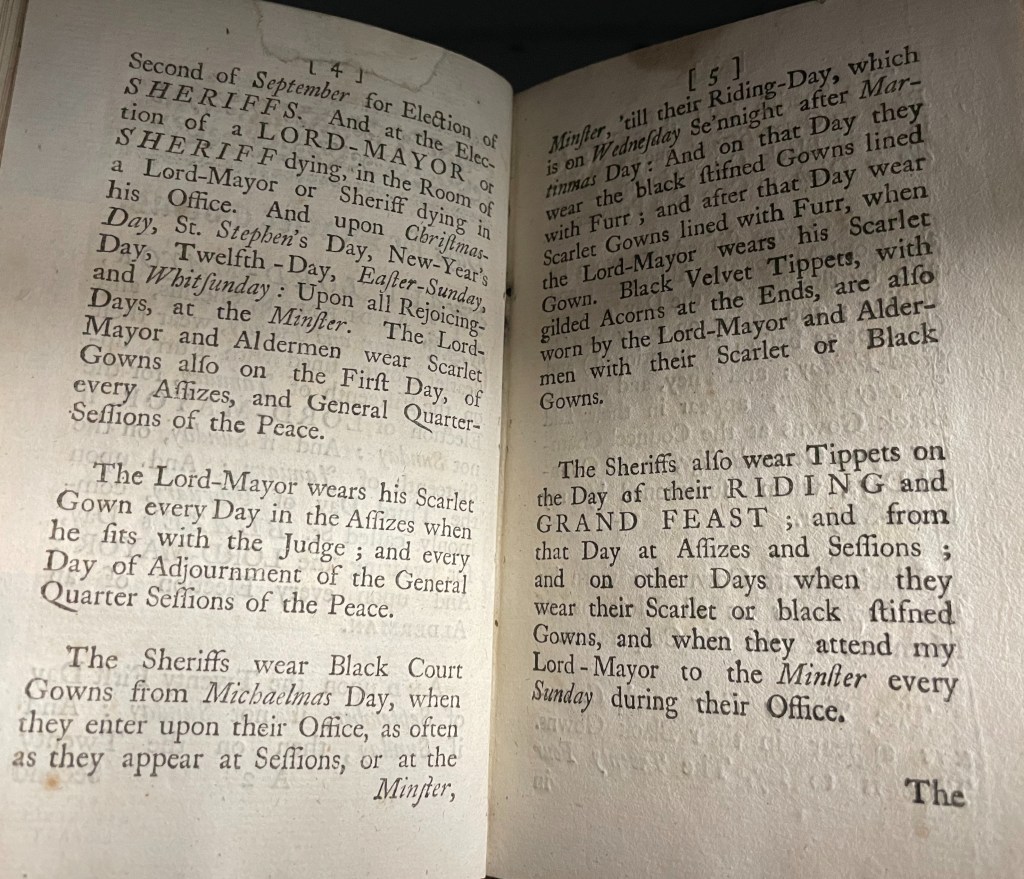 [ 4 ]
Second of September for Election of
SHERIFFS. And at the Elec-
tion of a LORD-MAYOR or
SHERIFF dying, in the Room of
a Lord-Mayor or Sheriff dying in
his Office. And upon Chriſtmas-
Day, St. Stephen's Day, New-Year's
Day, Twelfth-Day, Eaſter-Sunday,
and Whitſunday : Upon all Rejoicing-
Days, at the Minſter. The Lord-
Mayor and Aldermen wear Scarlet
Gowns alſo on the Firſt Day, of
every Aſſizes, and General Quarter-
Seſſions of the Peace.
The Lord-Mayor wears his Scarlet
Gown every Day in the Aſſizes when
he ſits with the Judge ; and every
Day of Adjournment of the General
Quarter Seſſions of the Peace.
The Sheriffs wear Black Court
Gowns from Michaelmas Day, when
they enter upon their Office, as often
as they appear at Seſſions, or at the
Minſter,
[ 5 ]
Minſter, 'till their Riding-Day, which
is on Wedneſday Se'nnight after Mar-
tinmas Day : And on that Day they
wear the black ſtifned Gowns lined
with Furr ; and after that Day wear
Scarlet Gowns lined with Furr, when
the Lord-Mayor wears his Scarlet
Gown. Black Velvet Tippets, with
gilded Acorns at the Ends, are alſo
worn by the Lord-Mayor and Alder-
men with their Scarlet or Black
Gowns.
The Sheriffs alſo wear Tippets on
the Day of their RIDING and
GRAND FEAST ; and from
that Day at Aſſizes and Seſſions ;
and on other Days when they
wear their Scarlet or black ſtifned
Gowns, and when they attend my
Lord-Mayor to the Minſter every
Sunday during their Office.
The